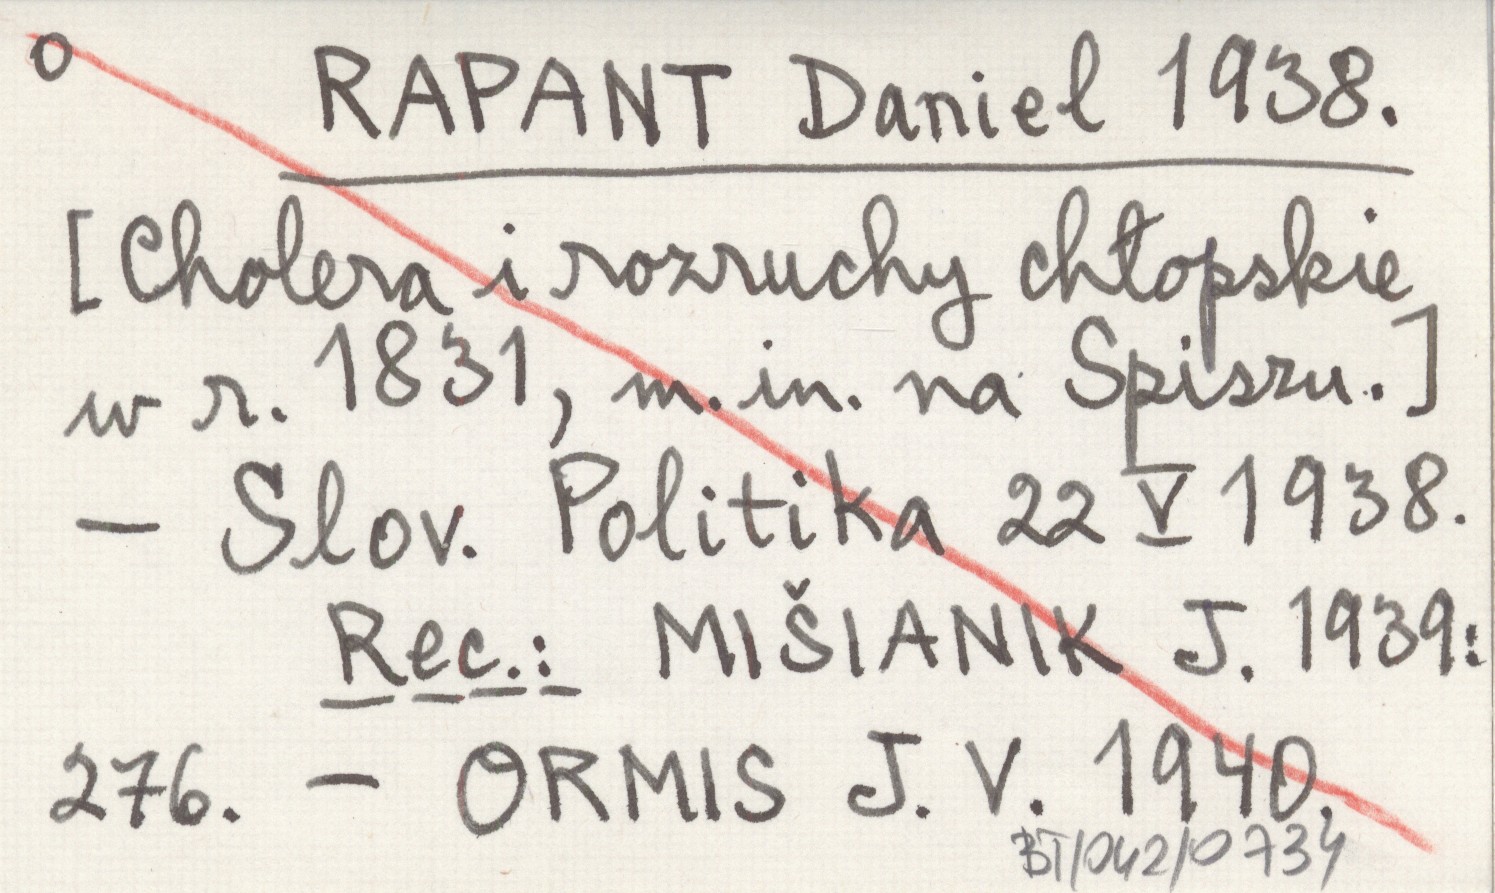 o RAPANT Daniel 1938.
[Cholera i rozruchy chłopskie
w r. 1831, m. in. na Spiszu.]
— Slov. Politika 22 V 1938.
Rec.: MIŠIANIK J. 1939:
276. — ORMIS J. V. 1940.
BT/042/0734